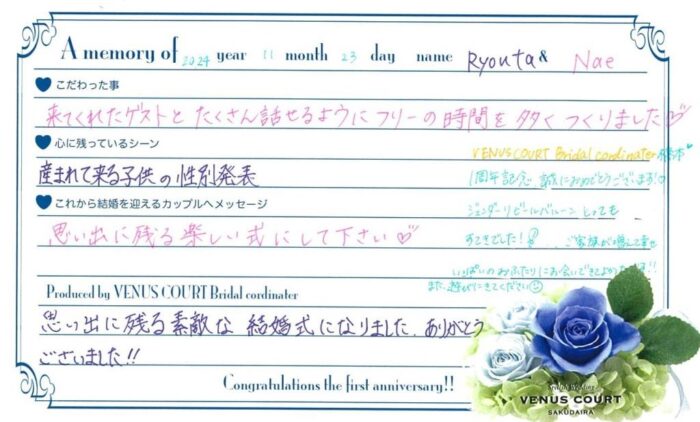 A memory of 2024 year 11 month 23 day name Ryouta & Nae
こだわった事
来てくれたゲストとたくさん話せるようにフリーの時間を多くつくりました♡
心に残っているシーン
VENUS COURT Bridal cordinater
産まれて来る子供の性別発表
1周年記念 誠におめでとうございます!♡
これから結婚を迎えるカップルへメッセージ
ジェンダーリビールバルーン とっても
思い出に残る楽しい式にして下さい♡
すてきでした! ご家族が増えて幸せ
いっぱいのおふたりにお会いできてよかったです!!
また、遊びにきてください☺
Produced by VENUS COURT Bridal cordinater
思い出に残る素敵な 結婚式になりました、ありがとう
ございました!!
Congratulations the first anniversary!!
VENUS COURT
SAKUDAIRA